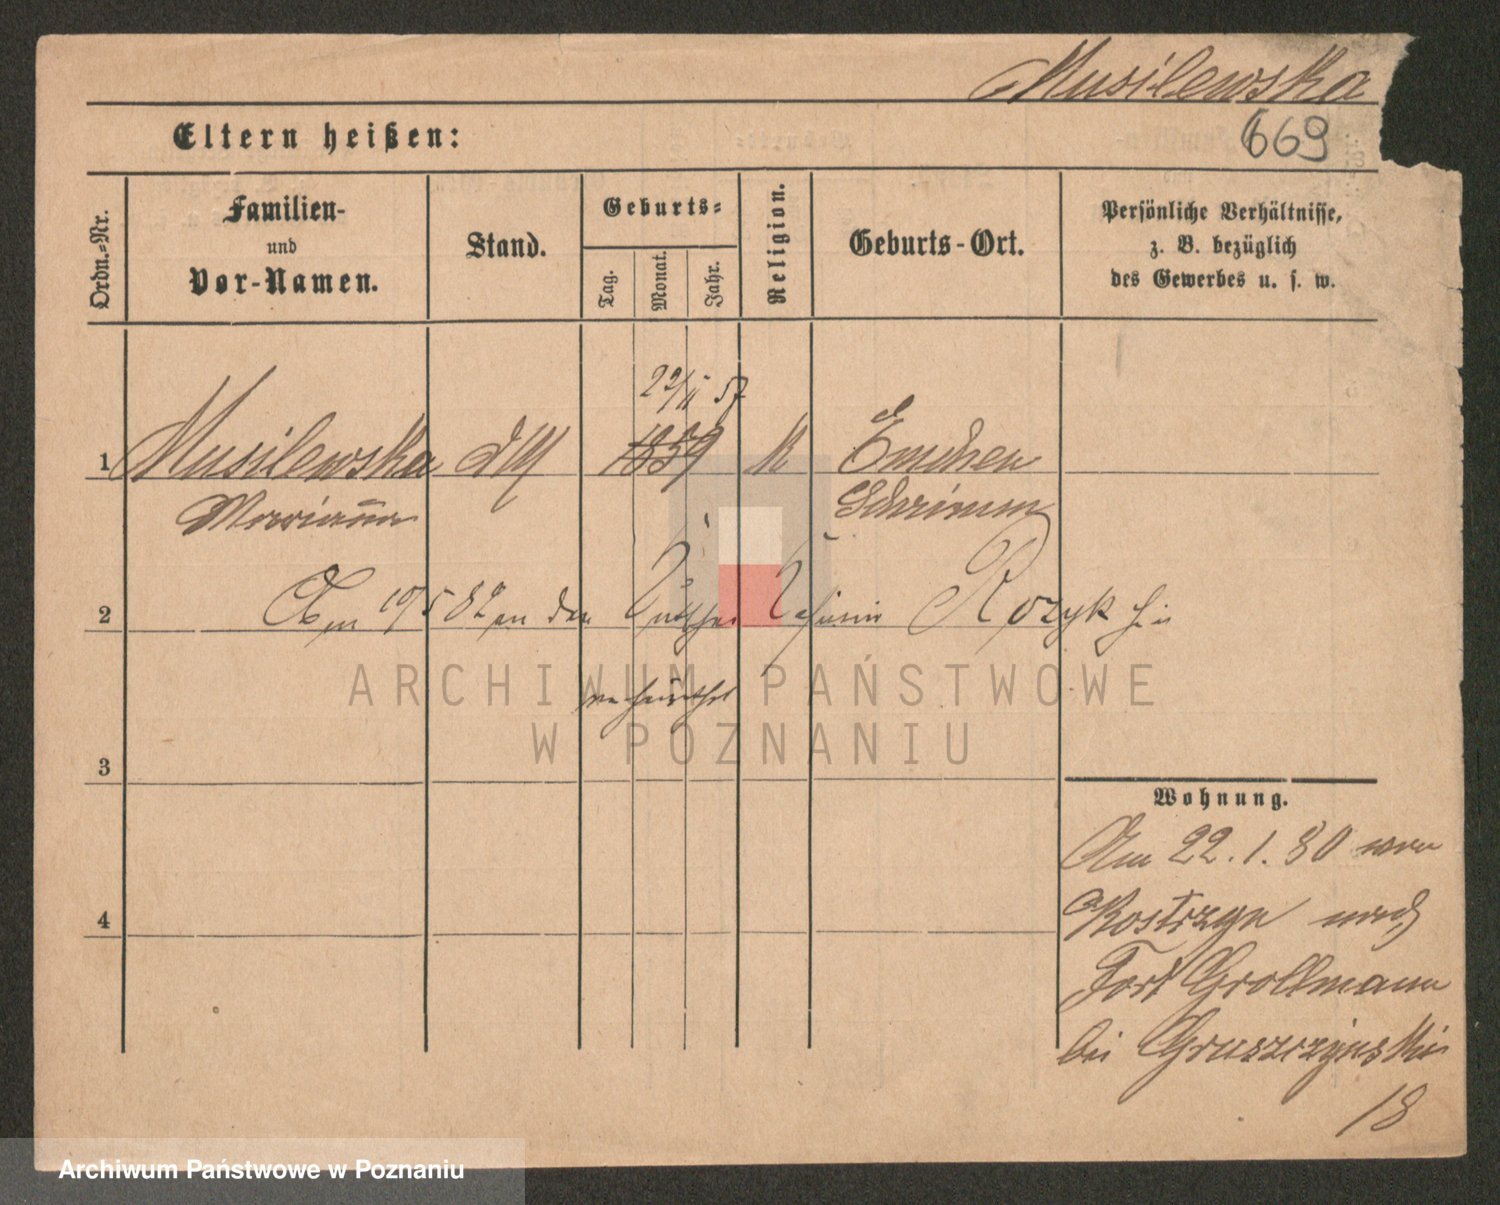 Musilewska
669
Eltern heißen:
Ordn.-Nr.
Familien-
und
Vor-Namen.
Stand.
Geburts-
Tag.
Monat.
Jahr.
Religion.
Geburts-Ort.
Persönliche Verhältnisse,
z. B. bezüglich
des Gewerbes u. s. w.
22/11 57
1 Musilewska 1859 K
Marianna Schrimm
2 an den Rozyk
3
4
ARCHIWUM PAŃSTWOWE
W POZNANIU
Wohnung.
Am 22.1.80 von
Kostrzyn nach
Fort Grollmann
bei Gruszczynski
18
Archiwum Państwowe w Poznaniu